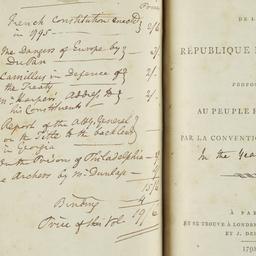 Price
French Constitution Enacted
in 1795
2/6
The Dangers of Europe by
Du Pan
3/-
Camillus in Defence of
the Treaty
2/-
Mr Harper's Address to
his Constituents
2/-
Report of the Atty General
on the Title to the backland
in Georgia
on the Prison of Philadelphia
The Archers by Mr Dunlap
15/6
Binding 4
Price of this Vol. 19/6
DE L
RÉPUBLIQUE
PROPO
AU PEUPLE
PAR LA CONVENTIO
In the Yea
A PAR
ET SE TROUVE À LONDRE
ET J. DE